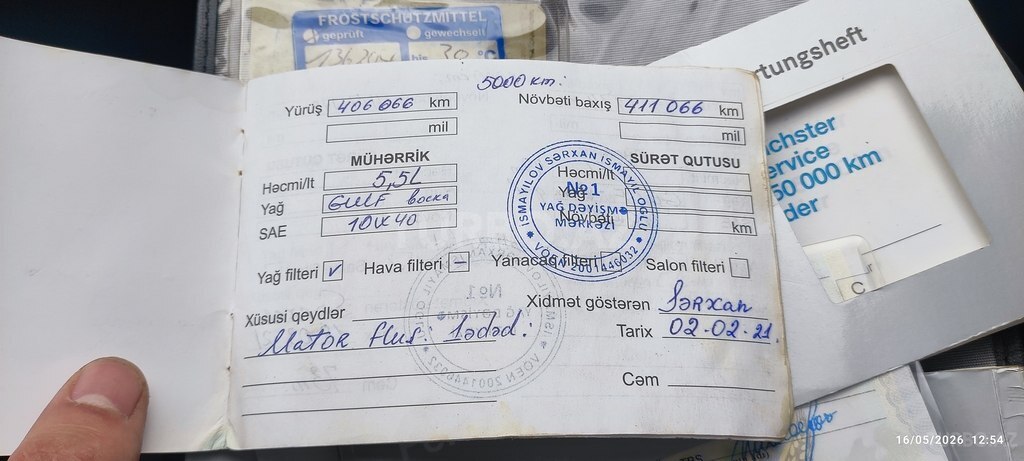 FROSTSCHUTZMITTEL
geprüft gewechselt
bis 30 °C
rtungsheft
chster
ervice
50 000 km
der
5000 km:
Yürüş 406 066 km Növbəti baxış 411 066 km
mil mil
MÜHƏRRİK SÜRƏT QUTUSU
Həcmi/lt 5,5L Həcmi/lt
Yağ GULF Yağ
SAE 10W40 Növbəti km
Yağ filteri ✓ Hava filteri – Yanacaq filteri Salon filteri
Xüsusi qeydlər Xidmət göstərən Sərxan
Mator flus: 1ədəd: Tarix 02.02.21
Cəm
İSMAYILOV SƏRXAN İSMAYIL OĞLU
№1
YAĞ DƏYİŞMƏ
MƏRKƏZİ
VÖEN 2001446032
16/05/2026 12:54